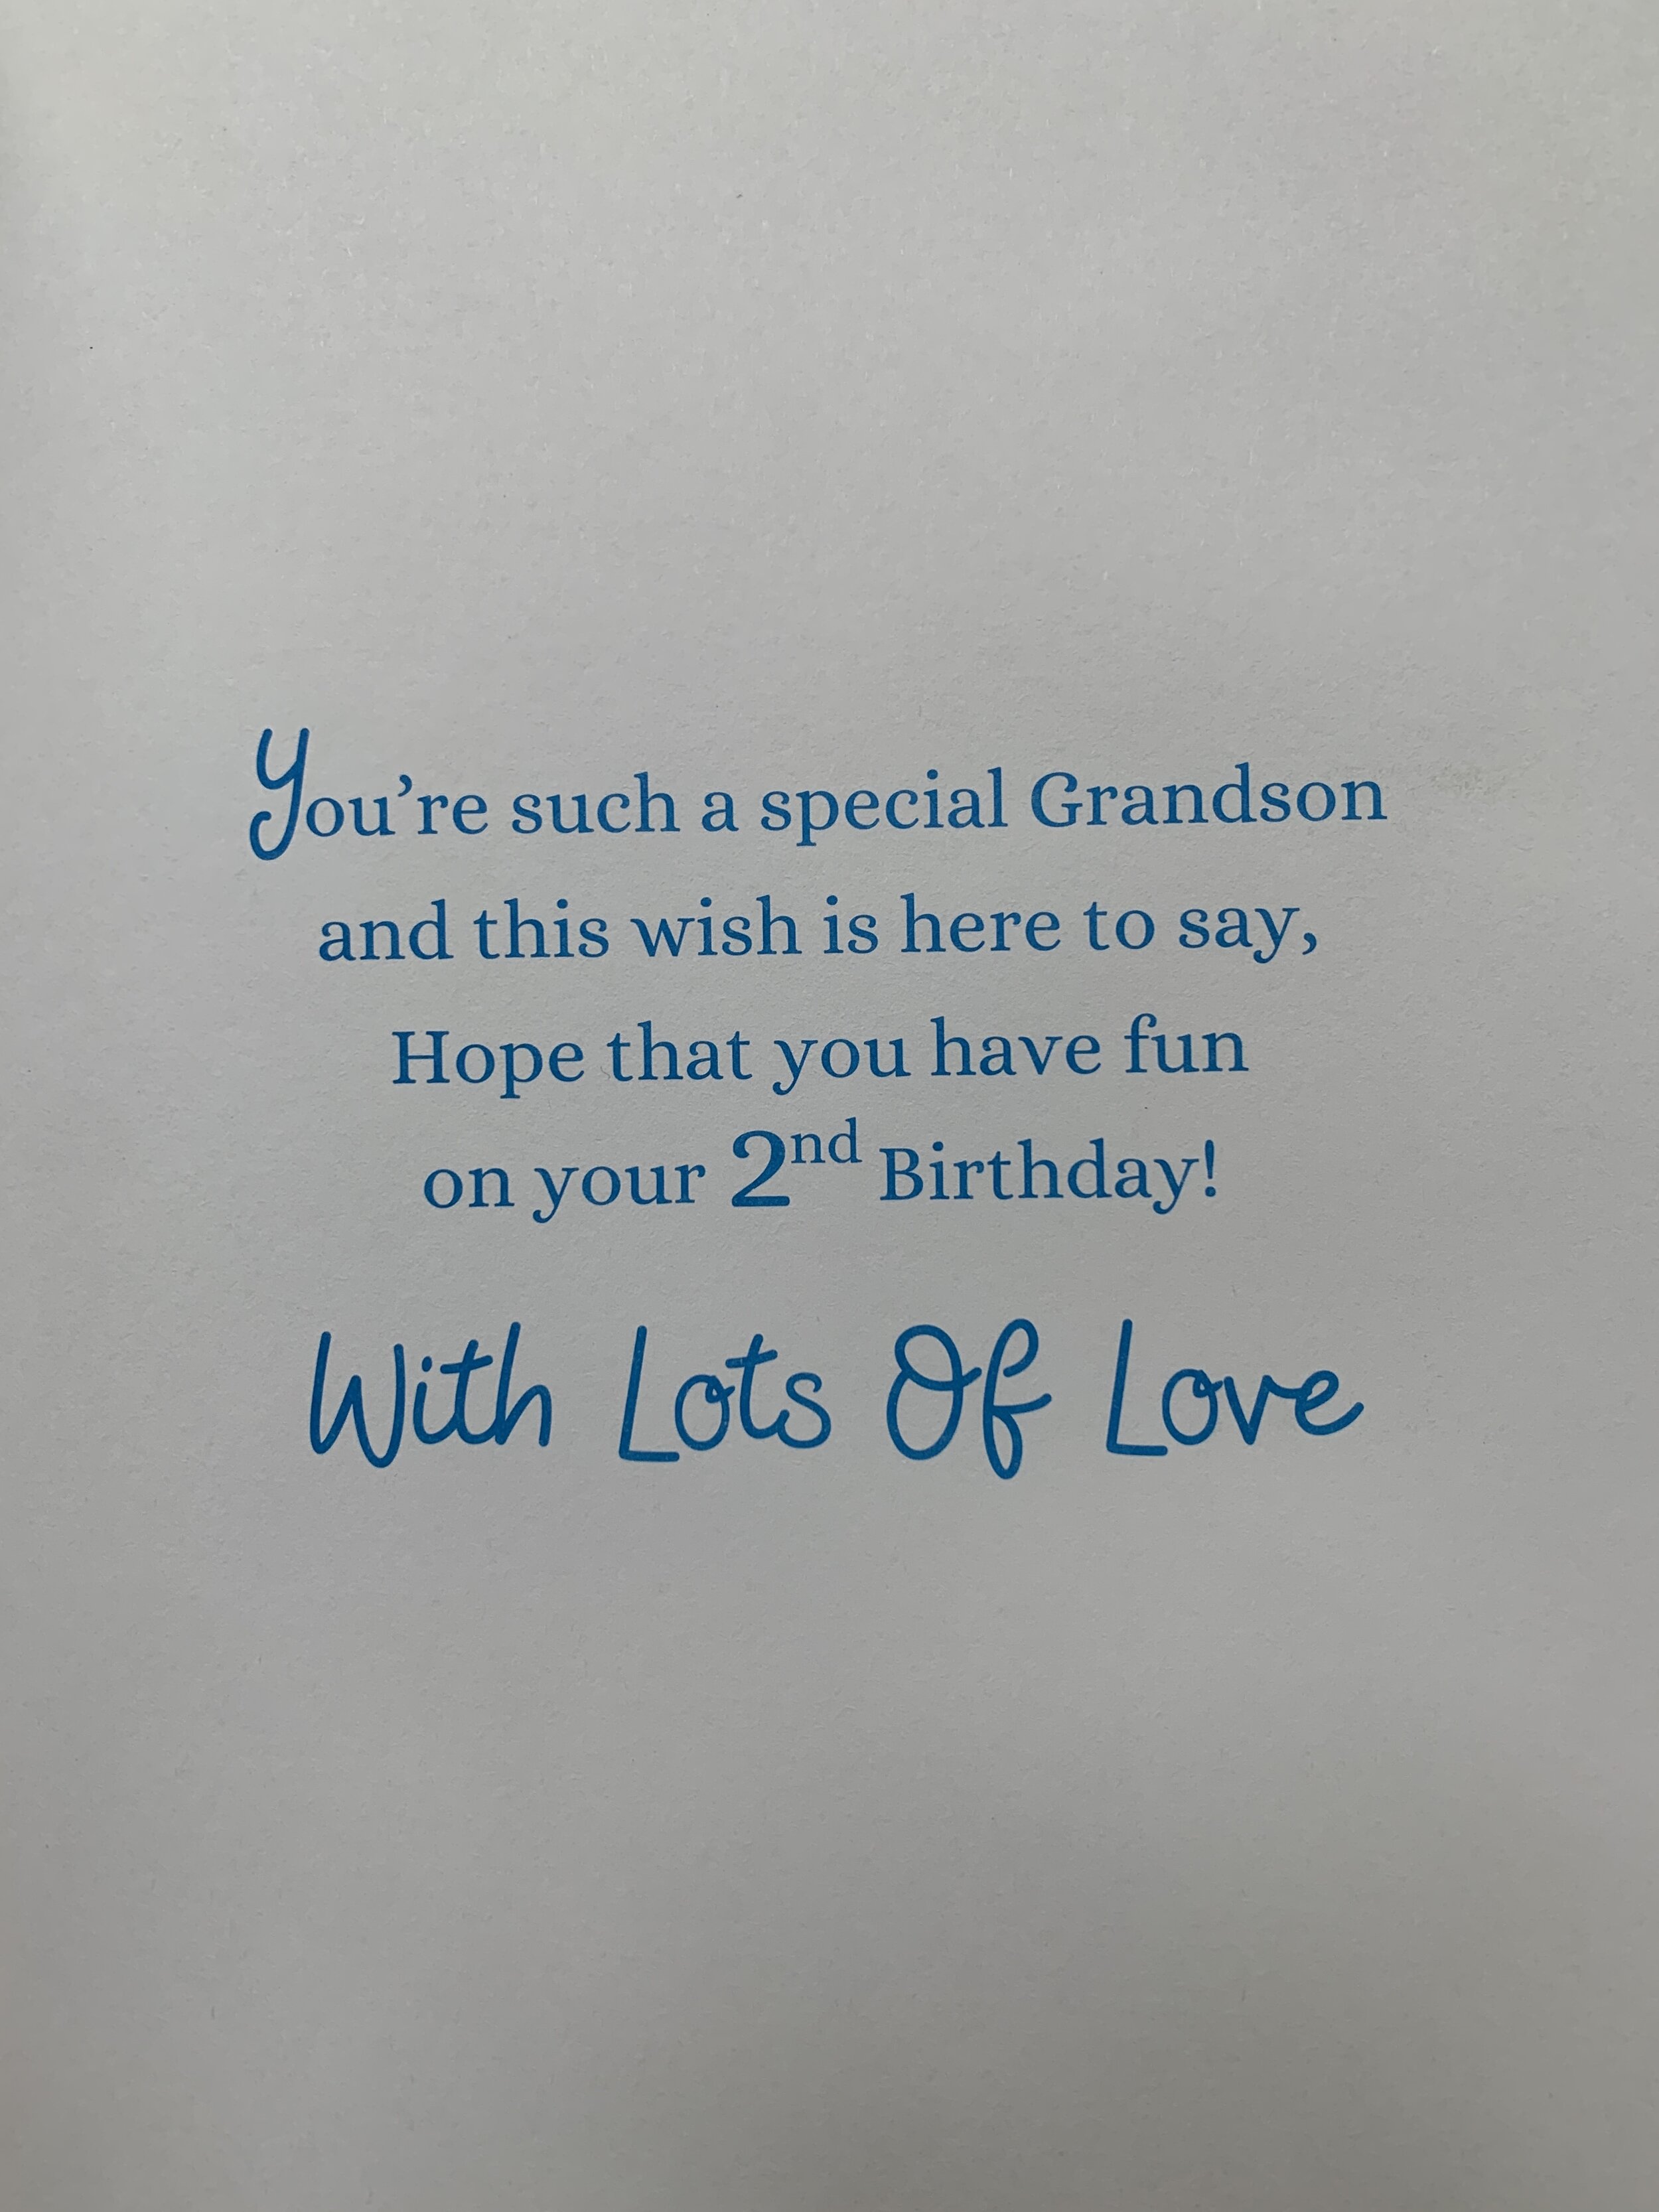 You’re such a special Grandson
and this wish is here to say,
Hope that you have fun
on your 2nd Birthday!
With Lots Of Love